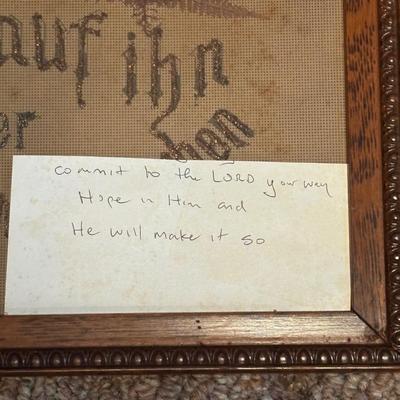 auf ihn
er
hen
commit to the LORD your way
Hope in Him and
He will make it so